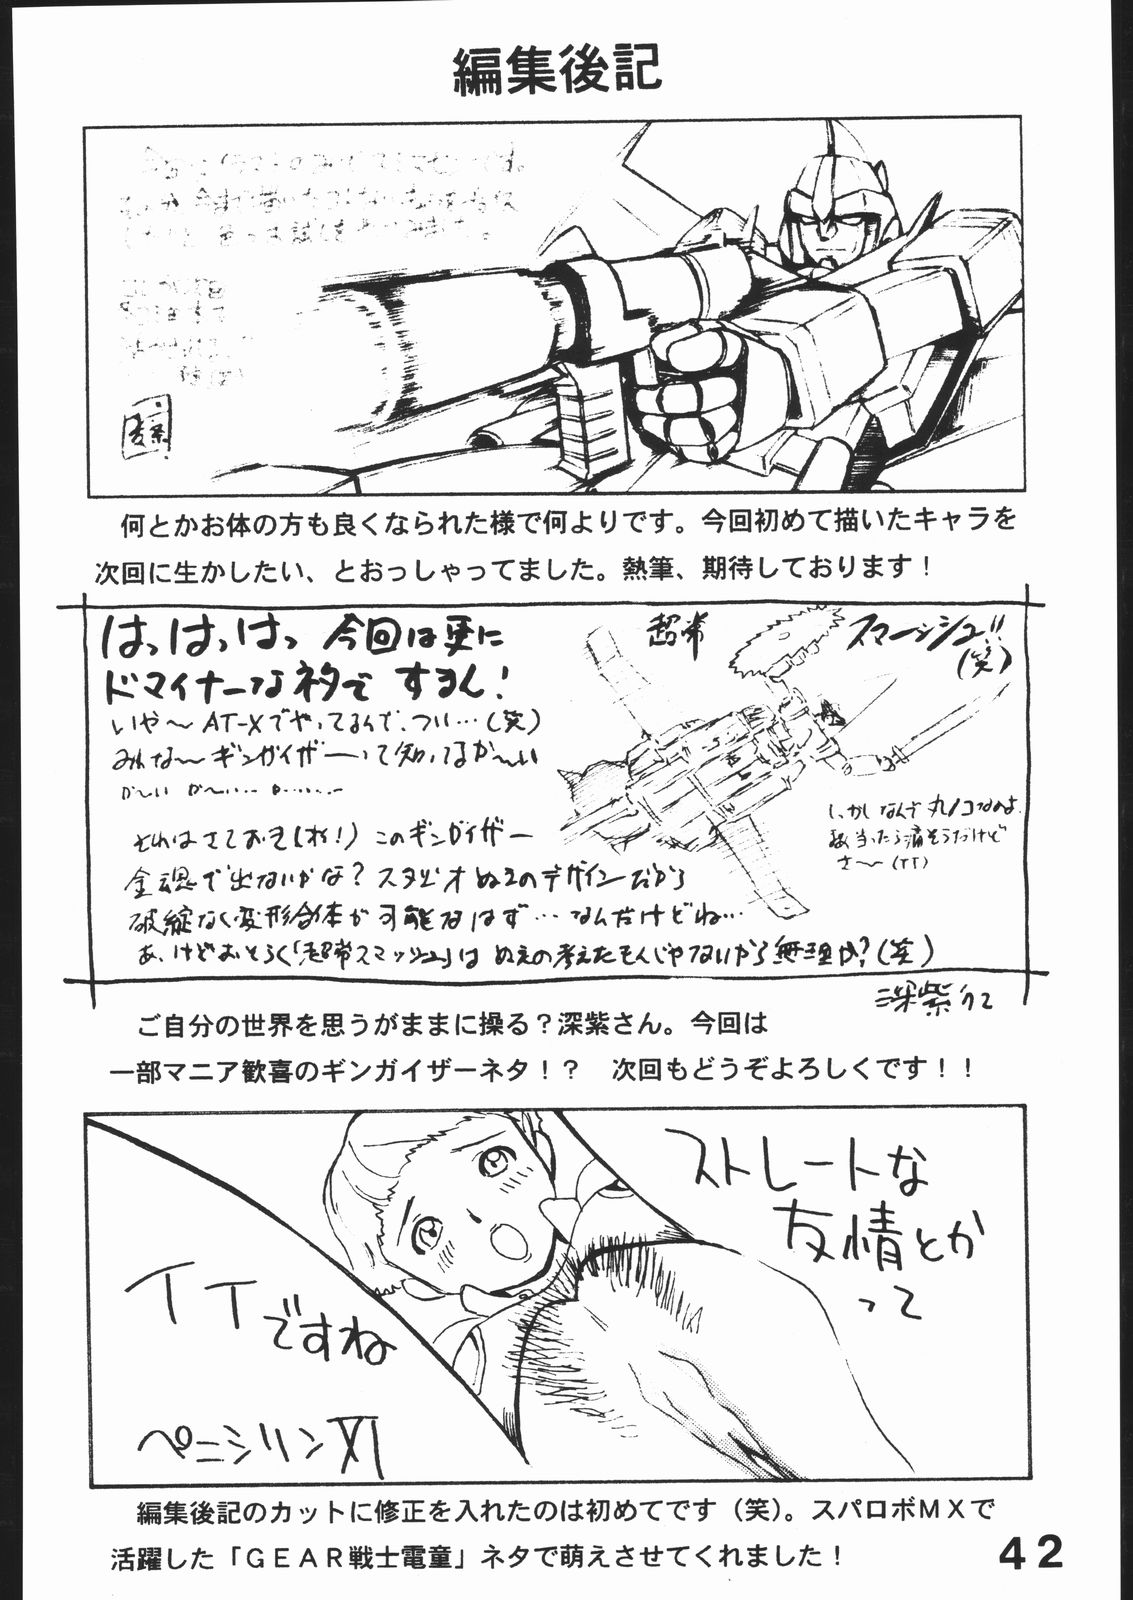 編集後記
何とかお体の方も良くなられた様で何よりです。今回初めて描いたキャラを
次回に生かしたい、とおっしゃってました。熱筆、期待しております！
はっはっはっ 今回は更に
ドマイナーなネタで すまん！
いや〜 AT-Xでやってるんで、つい…(笑)
みんな〜ギンガイザーって知ってるか〜い
か〜い か〜い…
超常
スマーッシュ!!
(笑)
しかしなんで丸ノコなのよ
当たったら痛そうだけど
さ〜(TT)
それはさておき(わ!) このギンガイザー
金魂で出ないかな？スタジオぬえのデザインだから
破綻なく変形合体が可能なはず…なんだけどね…
あ、けどおそらく「超常スマッシュ」はぬえの考えたもんじゃないから無理か？(笑)
深紫
ご自分の世界を思うがままに操る？深紫さん。今回は
一部マニア歓喜のギンガイザーネタ！？　次回もどうぞよろしくです！！
ストレートな
友情とか
って
イイ
ですね
ペニシリンXI
編集後記のカットに修正を入れたのは初めてです（笑）。スパロボＭＸで
活躍した「ＧＥＡＲ戦士電童」ネタで萌えさせてくれました！
42